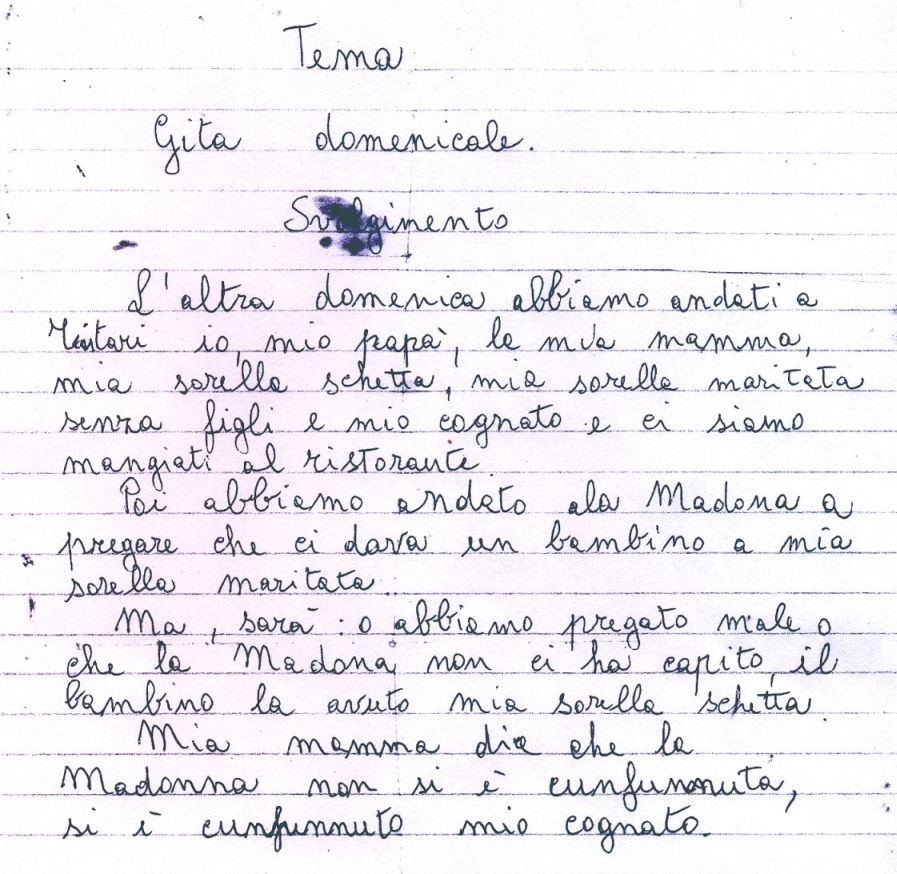 Tema
Gita domenicale.
Svolgimento
L'altra domenica abbiamo andati a
Tintari io, mio papà, la mia mamma,
mia sorella schetta, mia sorella maritata
senza figli e mio cognato e ci siamo
mangiati al ristorante
Poi abbiamo andato ala Madona a
pregare che ci dava un bambino a mia
sorella maritata.
Ma, sarà: o abbiamo pregato male o
che la Madona, non ci ha capito, il
bambino la avuto mia sorella schetta.
Mia mamma dice che la
Madonna non si è cunfunnuta,
si è cunfunnuto mio cognato.